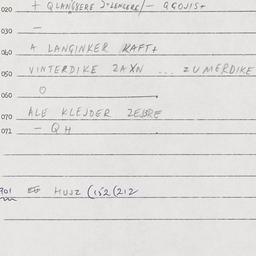 020 + QLANGSERE
030 —
040 A LANGINKER KAFT+
050 VINTERDIKE ZAXN ... ZUMERDIKE
060 O
070 ALE KLEJDER ZEJERE
071 — QH
901 HUJZ (152(212